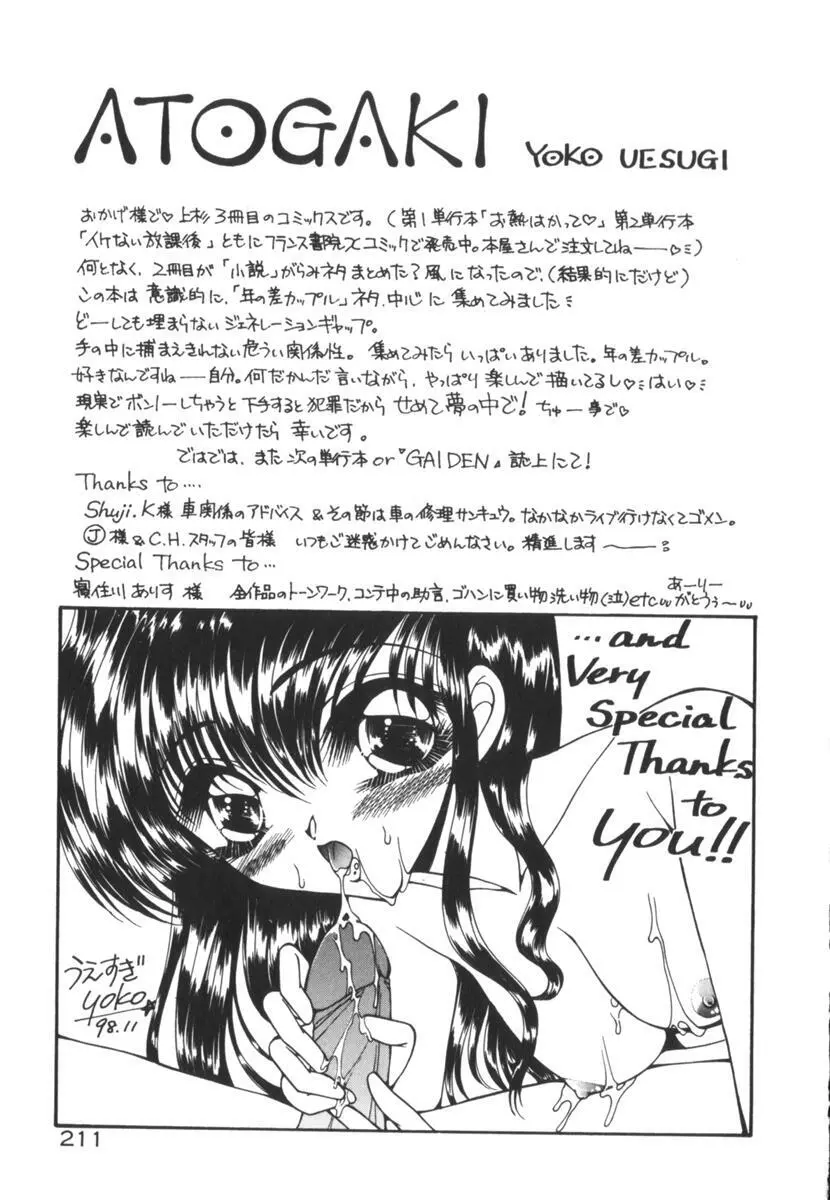 ATOGAKI YOKO UESUGI
おかげ様で♡上杉3冊目のコミックスです。(第1単行本「お熱はかって♡」第2単行本
「イケない放課後」ともにフランス書院Xコミックで発売中。本屋さんで注文してね——♡ミ)
何となく、2冊目が「小説」がらみネタまとめた?風になったので、(結果的にだけど)
この本は意識的に、「年の差カップル」ネタ、中心に集めてみましたミ
どーしても埋まらないジェネレーションギャップ。
手の中に捕まえきれない危うい関係性。集めてみたらいっぱいありました。年の差カップル。
好きなんですね——自分。何だかんだ言いながら、やっぱり楽しんで描いてるし♡ミはい♡ミ
現実でボンノーしちゃうと下手すると犯罪だからせめて夢の中で!ちゅー事で♡
楽しんで読んでいただけたら幸いです。
ではでは、また次の単行本or『GAIDEN』誌上にて!
Thanks to....
Shuji.K様 車関係のアドバイス&その節は車の修理サンキュウ。なかなかライブ行けなくてゴメン。
Ⓙ様&C.H.スタッフの皆様 いつもご迷惑かけてごめんなさい。精進します〜
Special Thanks to...
寝住川ありす様 全作品のトーンワーク、コンテ中の助言、ゴハンに買い物洗い物(泣)etc
あーりーがとうぅ〜
...and
Very
Special
Thanks
to
You!!
うえすぎ
Yoko
98.11
211